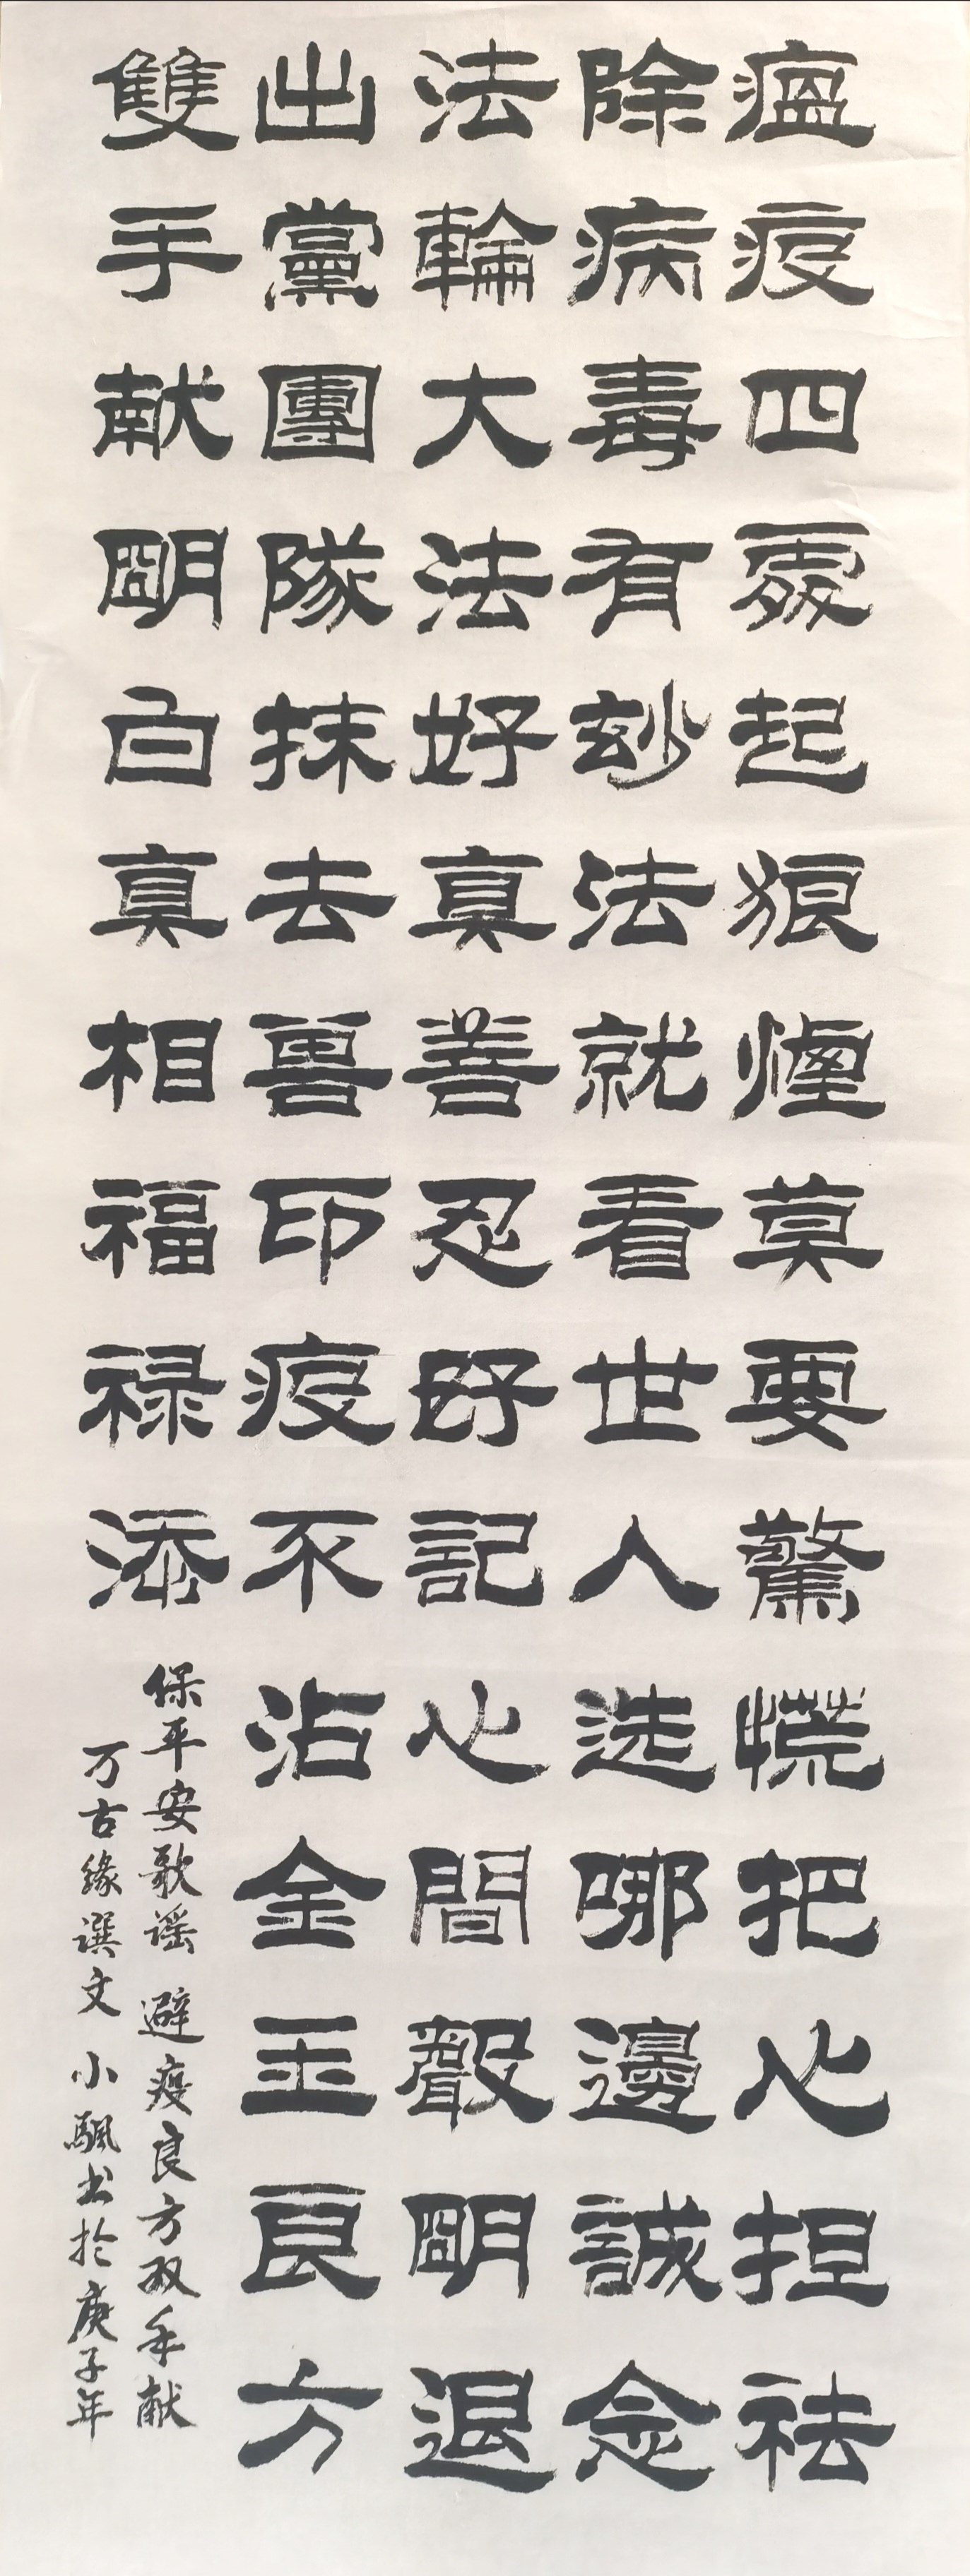 瘟疫四處起狼煙莫要驚慌把心担祛
除病毒有妙法就看世人选哪邊誠念
法輪大法好真善忍好記心間聲明退
出黨團隊抹去獸印疫不沾金玉良方
雙手献明白真相福禄添
保平安歌谣 避疫良方双手献
万古緣選文 小飄书於庚子年